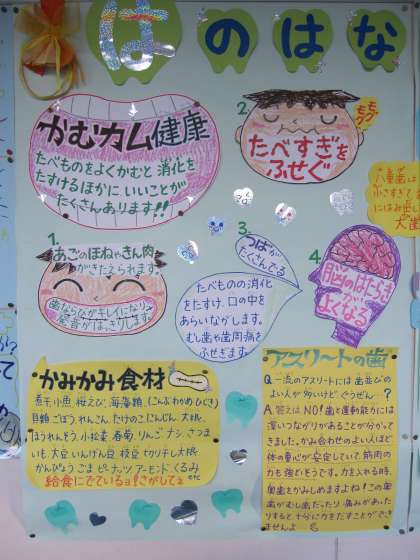 はのはな
かむカム健康
たべものをよくかむと 消化を
たすけるほかに いいことが
たくさんあります!!
1.
あごのほねやきん肉
がきたえられます。
歯ならびがキレイになり
発音がはっきりします。
2.
モグモグ
たべすぎを
ふせぐ
3.
つばが
たくさんでる
たべものの消化
をたすけ、口の中を
あらいながします。
むし歯や歯周病を
ふせぎます。
4.
脳のはたらき
がよくなる
八重歯は
かみかみ食材
煮干 小魚 桜えび、海藻類(こんぶわかめひじき)
貝類 ごぼう れんこん たけのこ にんじん 大根、
ほうれんそう 小松菜 春菊、りんご ナシ、さつま
いも 大豆 いんげん豆 枝豆 切り干し大根
かんぴょう ごま ピーナッツ アーモンド くるみ
給食にでているよ!さがしてネ etc
アスリートの歯
Q 一流のアスリートには歯並びの
よい人が多いけど ぐうぜん…?
A. 答えは NO! 歯と運動能力には
深いつながりがあることが分かって
きました。かみ合わせのよい人ほど
体の重心が安定していて、筋肉の
力も強いそうです。力を入れる時、
奥歯をかみしめますよね!この奥
歯がむし歯だったり 痛みがあった
りすると十分に力をだすことができ
ませんよ